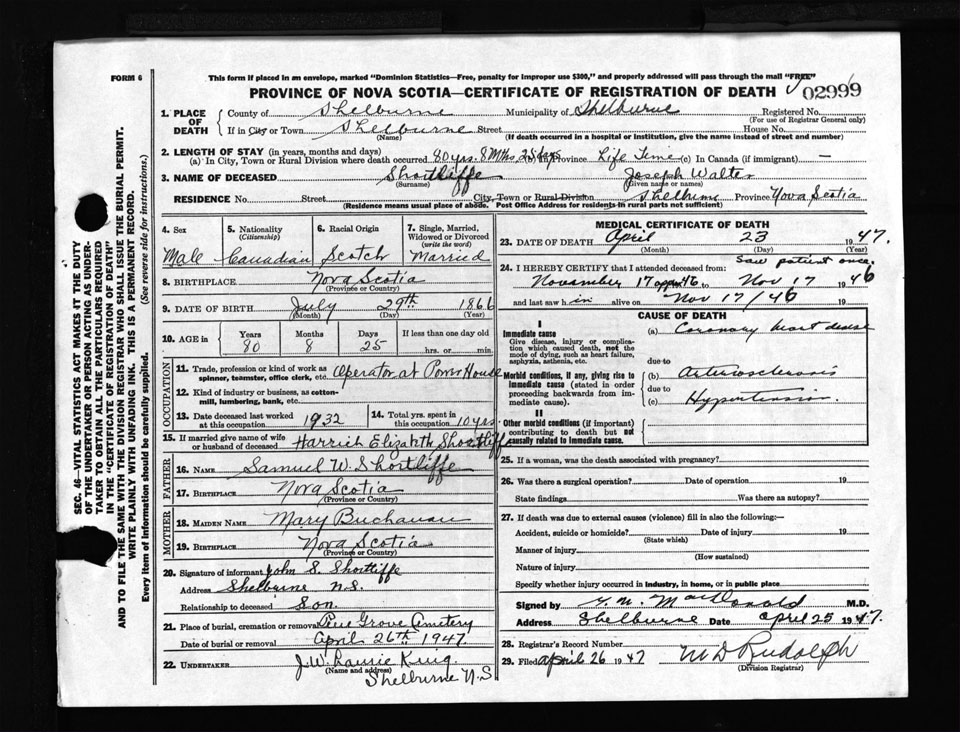 FORM 6
This form if placed in an envelope, marked "Dominion Statistics—Free, penalty for improper use $300," and properly addressed will pass through the mail "FREE"
PROVINCE OF NOVA SCOTIA—CERTIFICATE OF REGISTRATION OF DEATH 02999
1. PLACE OF DEATH
County of Shelburne Municipality of Shelburne Registered No.
(For use of Registrar General only)
If in City or Town Shelburne Street House No.
(Name) (If death occurred in a hospital or institution, give the name instead of street and number)
2. LENGTH OF STAY (in years, months and days)
(a) In City, Town or Rural Division where death occurred 80 yrs. 8 Mths, 25 days Province Life Time (c) In Canada (if immigrant) —
3. NAME OF DECEASED Shortliffe Joseph Walter
(Surname) (Given name or names)
RESIDENCE No. Street City, Town or Rural Division Shelburne Province Nova Scotia
(Residence means usual place of abode. Post Office Address for residents in rural parts not sufficient)
4. Sex
Male
5. Nationality
(Citizenship)
Canadian
6. Racial Origin
Scotch
7. Single, Married,
Widowed or Divorced
(write the word)
Married
8. BIRTHPLACE Nova Scotia
(Province or Country)
9. DATE OF BIRTH July 29th 1866
(Month) (Day) (Year)
10. AGE in
Years Months Days If less than one day
80 8 25 hrs. or min.
OCCUPATION
11. Trade, profession or kind of work as
spinner, teamster, office clerk, etc. Operator at Power House
12. Kind of industry or business, as cotton-
mill, lumbering, bank, etc.
13. Date deceased last worked
at this occupation 1932
14. Total yrs. spent in
this occupation 10 yrs.
15. If married give name of wife
or husband of deceased Harriet Elizabeth Shortliffe
FATHER
16. NAME Samuel W. Shortliffe
17. BIRTHPLACE Nova Scotia
(Province or Country)
MOTHER
18. MAIDEN NAME Mary Buchanan
19. BIRTHPLACE Nova Scotia
(Province or Country)
20. Signature of informant John S. Shortliffe
Address Shelburne N.S.
Relationship to deceased Son.
21. Place of burial, cremation or removal Pine Grove Cemetery
Date of burial or removal April 26th 1947.
22. UNDERTAKER J. W. Laurie King.
(Name and address)
Shelburne N.S
MEDICAL CERTIFICATE OF DEATH
23. DATE OF DEATH April 23 1947.
(Month) (Day) (Year)
Saw patient once.
24. I HEREBY CERTIFY that I attended deceased from:
November 17 46 to Nov 17 1946
and last saw him alive on Nov 17/46 19
CAUSE OF DEATH
I
Immediate cause
Give disease, injury or complica-
tion which caused death, not the
mode of dying, such as heart failure,
asphyxia, asthenia, etc.
(a) Coronary heart disease
due to
Morbid conditions, if any, giving rise to
immediate cause (stated in order
proceeding backwards from im-
mediate cause).
(b) Arteriosclerosis
due to
(c) Hypertension.
II
Other morbid conditions (if important)
contributing to death but not
causally related to immediate cause.
25. If a woman, was the death associated with pregnancy?
26. Was there a surgical operation? Date of operation 19
State findings Was there an autopsy?
27. If death was due to external causes (violence) fill in also the following:—
Accident, suicide or homicide? Date of injury 19
(State which)
Manner of injury
(How sustained)
Nature of injury
Specify whether injury occurred in industry, in home, or in public place
Signed by MacDonald M.D.
Address Shelburne Date April 25 1947.
28. Registrar's Record Number
29. Filed April 26 1947 M D Rudolph
(Division Registrar)
SEC. 46—VITAL STATISTICS ACT MAKES IT THE DUTY
OF THE UNDERTAKER OR PERSON ACTING AS UNDER-
TAKER TO OBTAIN ALL THE PARTICULARS REQUIRED
IN THE "CERTIFICATE OF REGISTRATION OF DEATH"
AND TO FILE THE SAME WITH THE DIVISION REGISTRAR WHO SHALL ISSUE THE BURIAL PERMIT.
WRITE PLAINLY WITH UNFADING INK. THIS IS A PERMANENT RECORD.
Every item of information should be carefully supplied. (See reverse side for instructions.)